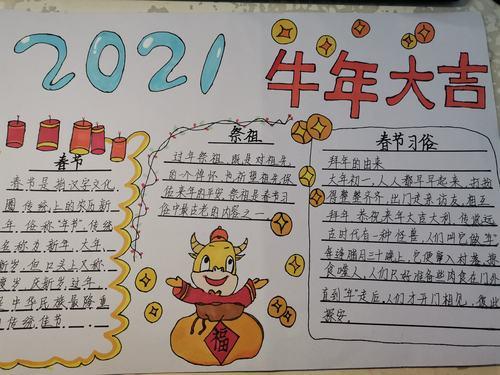 2021
牛年大吉
春节
春节是指汉字文化
圈传统上的农历新
年,俗称"年节",传统
名称为新年、大年、
新岁,但口头上又称
度岁、庆新岁、过年
是中华民族最隆重
传统佳节
祭祖
过年祭祖,既是对祖先
的一个缅怀,也祈望祖先保
佑来年的平安,祭祖是春节习
俗中最古老的内容之一
福
春节习俗
拜年的由来
大年初一,人人都早早起来,打扮
得整整齐齐,出门走亲访友,相互
拜年,恭祝来年大吉大利,传说远
古时代有一种怪兽,人们叫它做"年"
每逢腊月三十晚上,它便窜入村寨,
食噬人,人们只好准备些肉食在门
直到"年"走后,人们才开门相见,
报安。